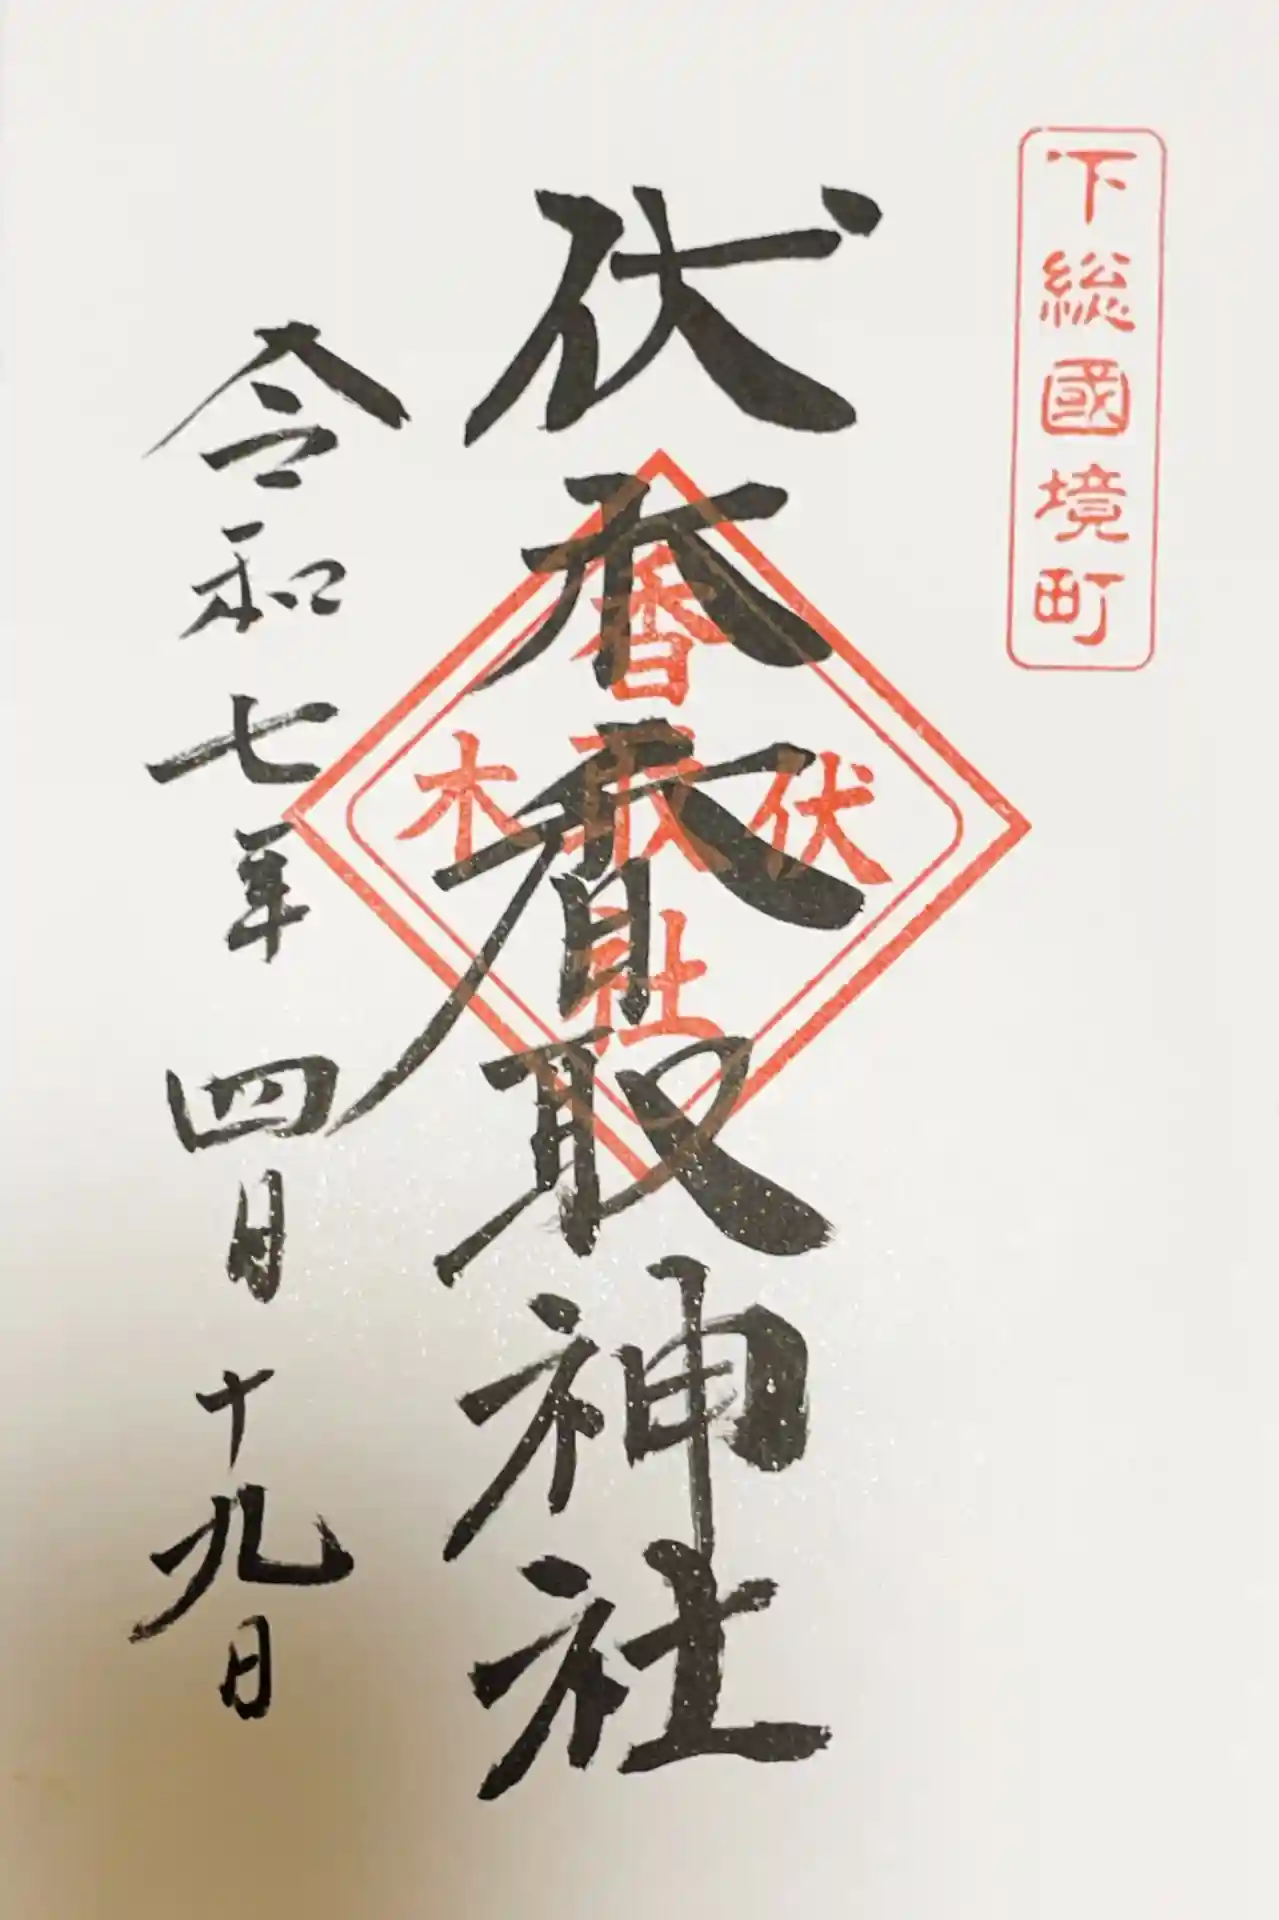 下総國境町
伏木香取神社
伏
香取社
木
令和七年四月十九日